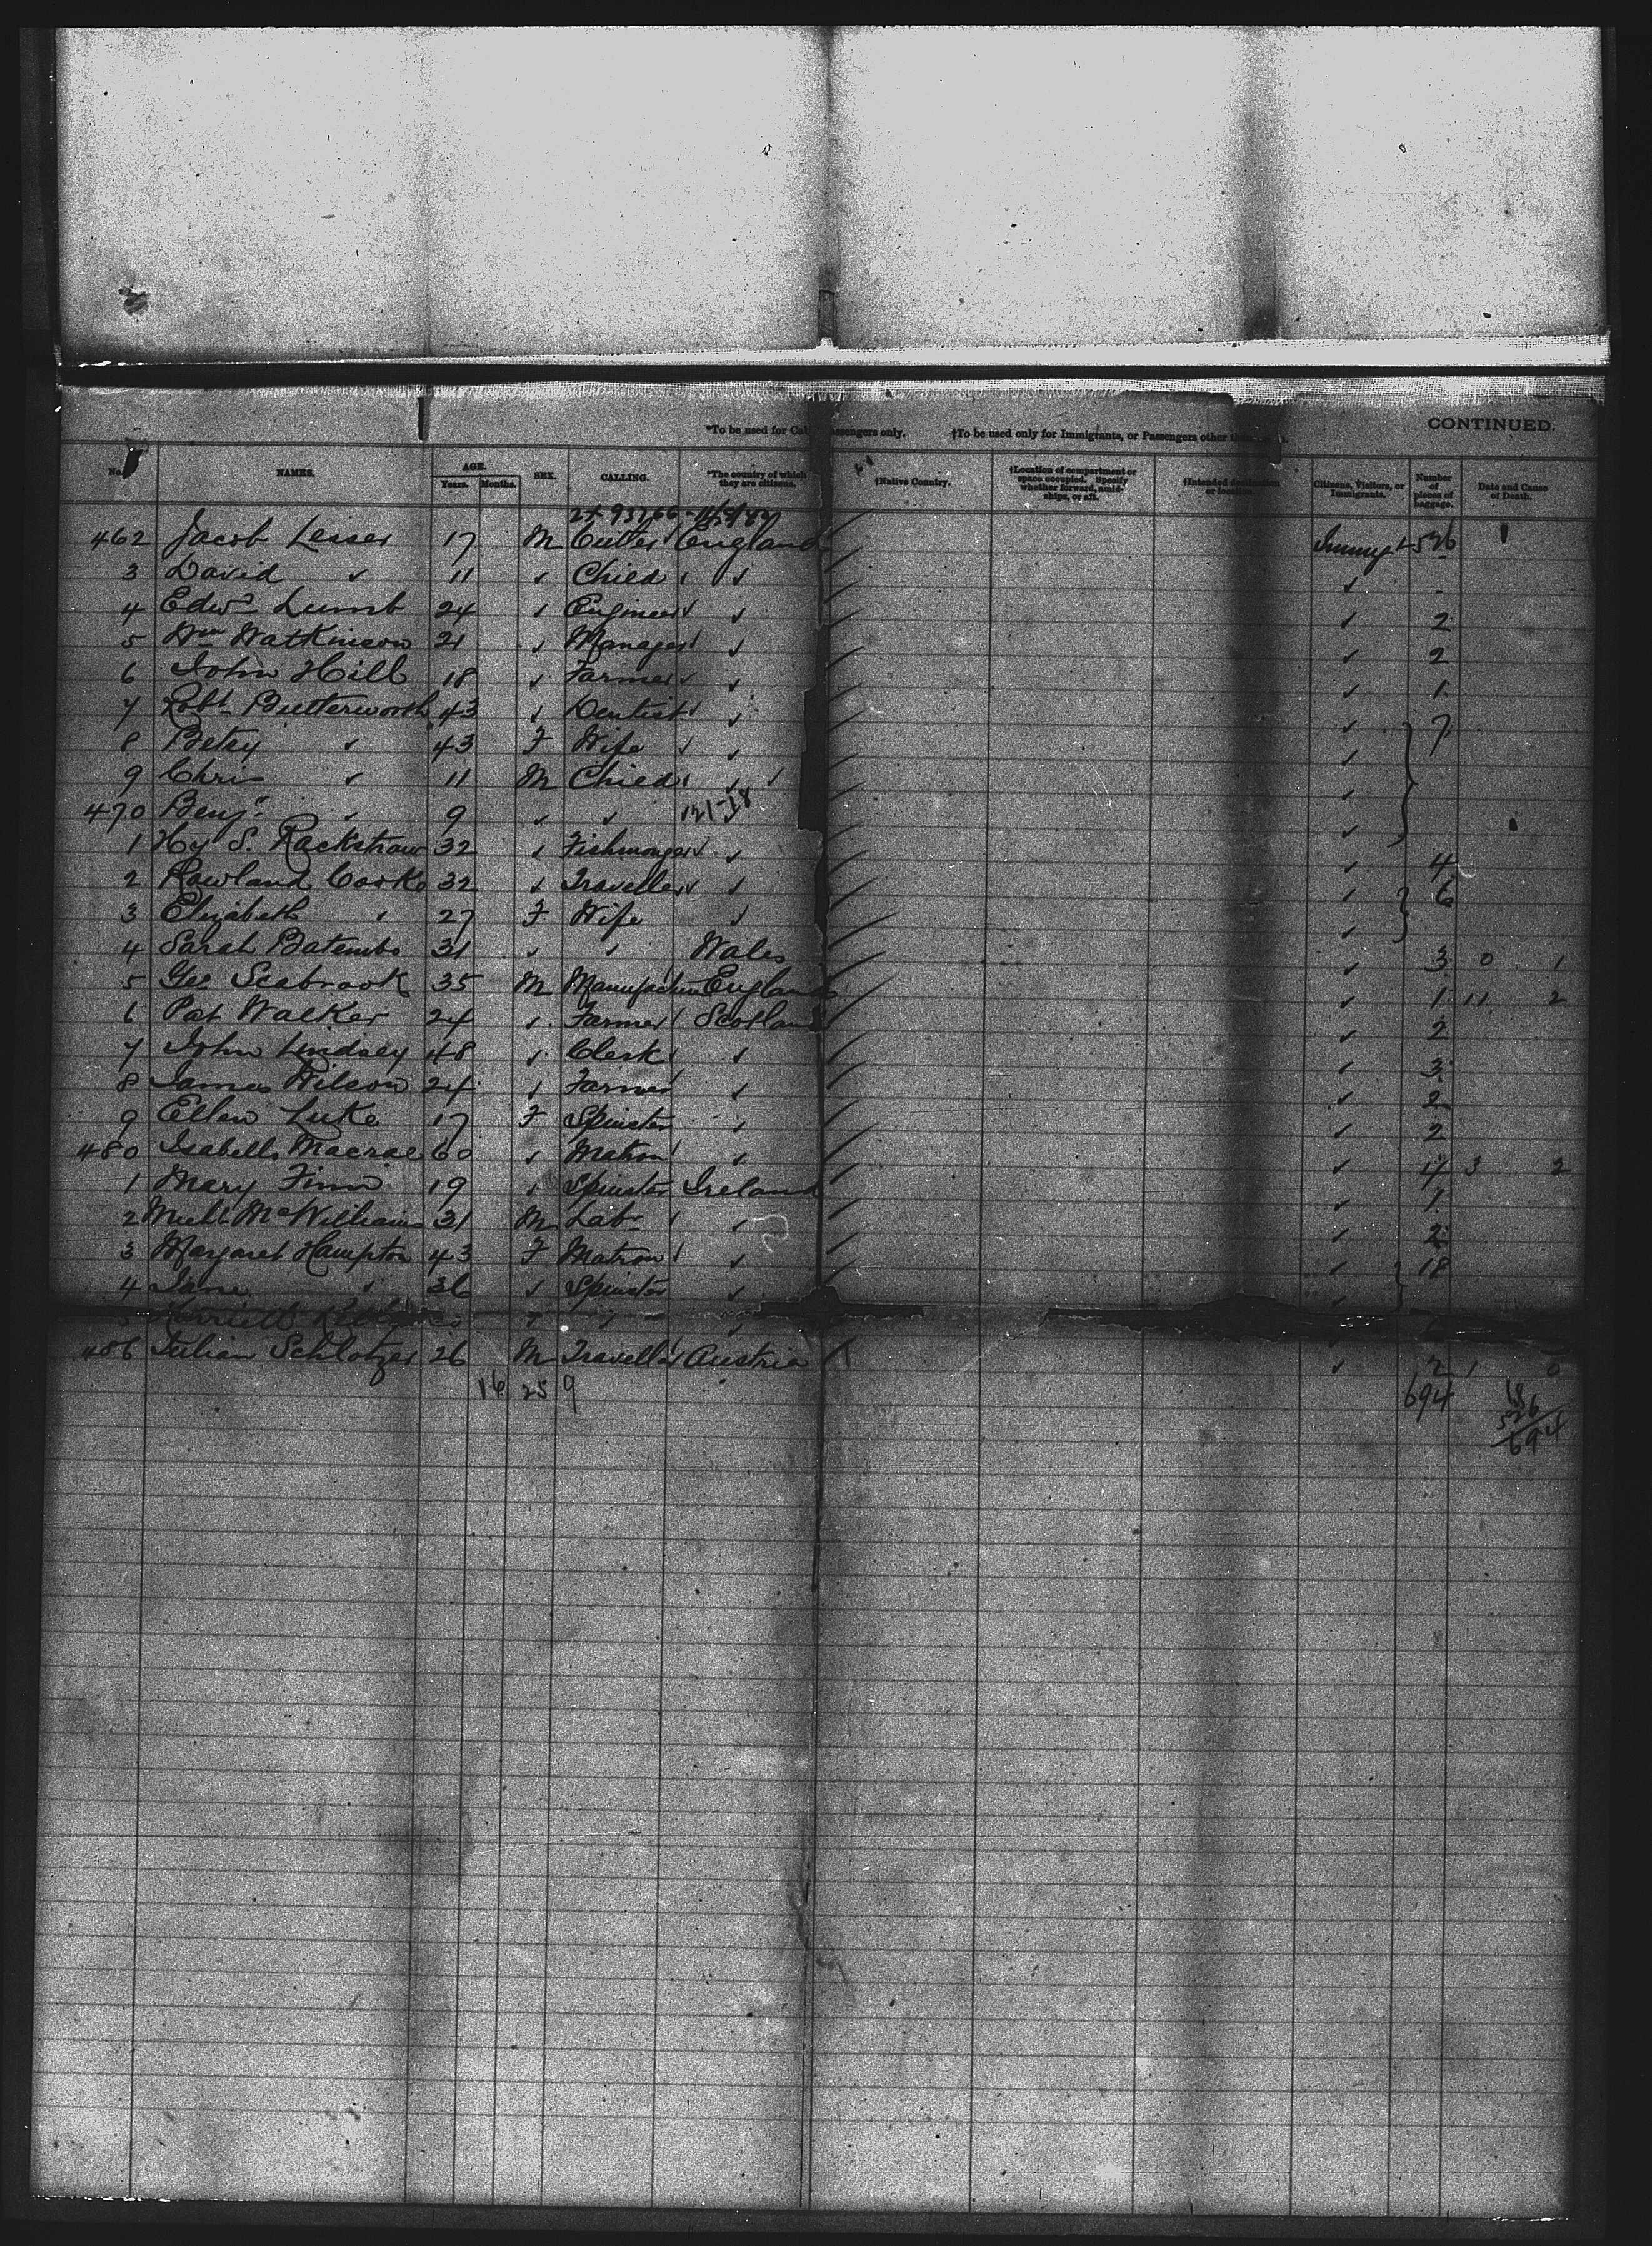 CONTINUED.
*To be used for Cabin Passengers only. †To be used only for Immigrants, or Passengers other than
No. NAMES. AGE. Years. Months. SEX. CALLING. *The country of which they are citizens. †Native Country. †Location of compartment or space occupied. Specify whether forward, amidships, or aft. †Intended destination or location. Citizens, Visitors, or Immigrants. Number of pieces of baggage. Date and Cause of Death.
462 Jacob Lesser 17 M Cutter England 526
3 David ✓ 11 ✓ Child ✓ ✓
4 Edwd Lumb 24 ✓ Engineer ✓ ✓ 2
5 Wm Watkinson 21 ✓ Manager ✓ ✓ 2
6 John Hill 18 ✓ Farmer ✓ ✓ 1
7 Robt Butterworth 43 ✓ Dentist ✓ ✓ 7
8 Betsy ✓ 43 F Wife ✓ ✓
9 Chris ✓ 11 M Child ✓ ✓
470 Benjn ✓ 9 ✓ ✓ ✓
1 Hy S. Rackstraw 32 ✓ Fishmonger ✓ ✓ 4
2 Rowland Cooke 32 ✓ Traveller ✓ ✓ 6
3 Elizabeth ✓ 27 F Wife ✓ ✓
4 Sarah 31 ✓ ✓ Wales ✓ 3 0 1
5 Geo Seabrook 35 M England ✓ 1 11 2
6 Pat Walker 24 ✓ Farmer Scotland ✓ 2
7 John Lindsey 48 ✓ Clerk ✓ ✓ 3
8 James Wilson 24 ✓ Farmer ✓ ✓ 2
9 Ellen Luke 17 F Spinster ✓ ✓ 2
480 Isabella Macrae 60 ✓ Matron ✓ ✓ 4 3 2
1 Mary Finn 19 ✓ Spinster Ireland ✓ 1
2 McWilliams 31 M Labr ✓ ✓ 2
3 Margaret Hampton 43 F Matron ✓ ✓ 18
4 Jane ✓ 36 ✓ Spinster ✓ ✓
5 Harriett
486 Julian Schlotzer 26 M Traveller Austria ✓ 2 1 0
16 25 9 694
526
694